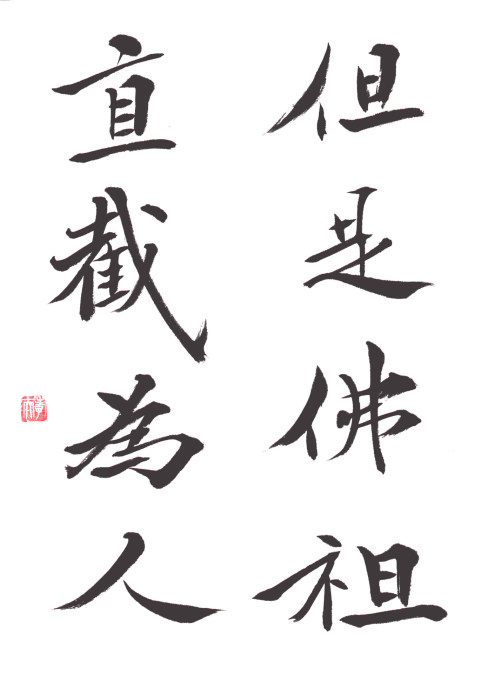 但是佛祖
直截為人